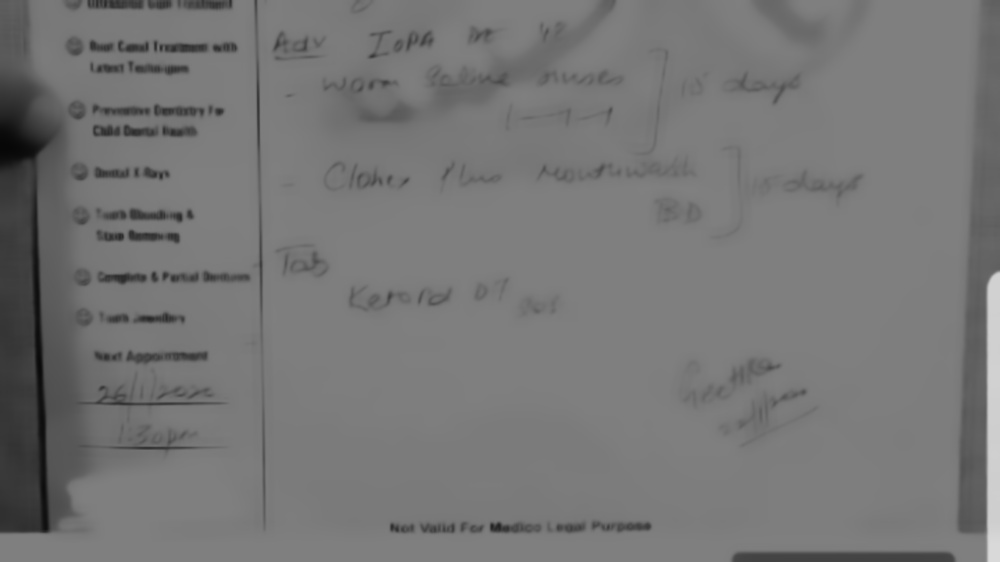 Ultrasonic Gum Treatment
Root Canal Treatment with
Latest Techniques
Preventive Dentistry For
Child Dental Health
Dental X-Rays
Tooth Bleaching &
Stain Removing
Complete & Partial Dentures
Tooth Jewellery
Next Appointment
26/1/2020
1:30pm
Adv IOPA
- Warm Saline rinses
] 15 days
- Clohex Plus Mouthwash
BD
] 15 days
Tab
Ketorol DT
Not Valid For Medico Legal Purpose